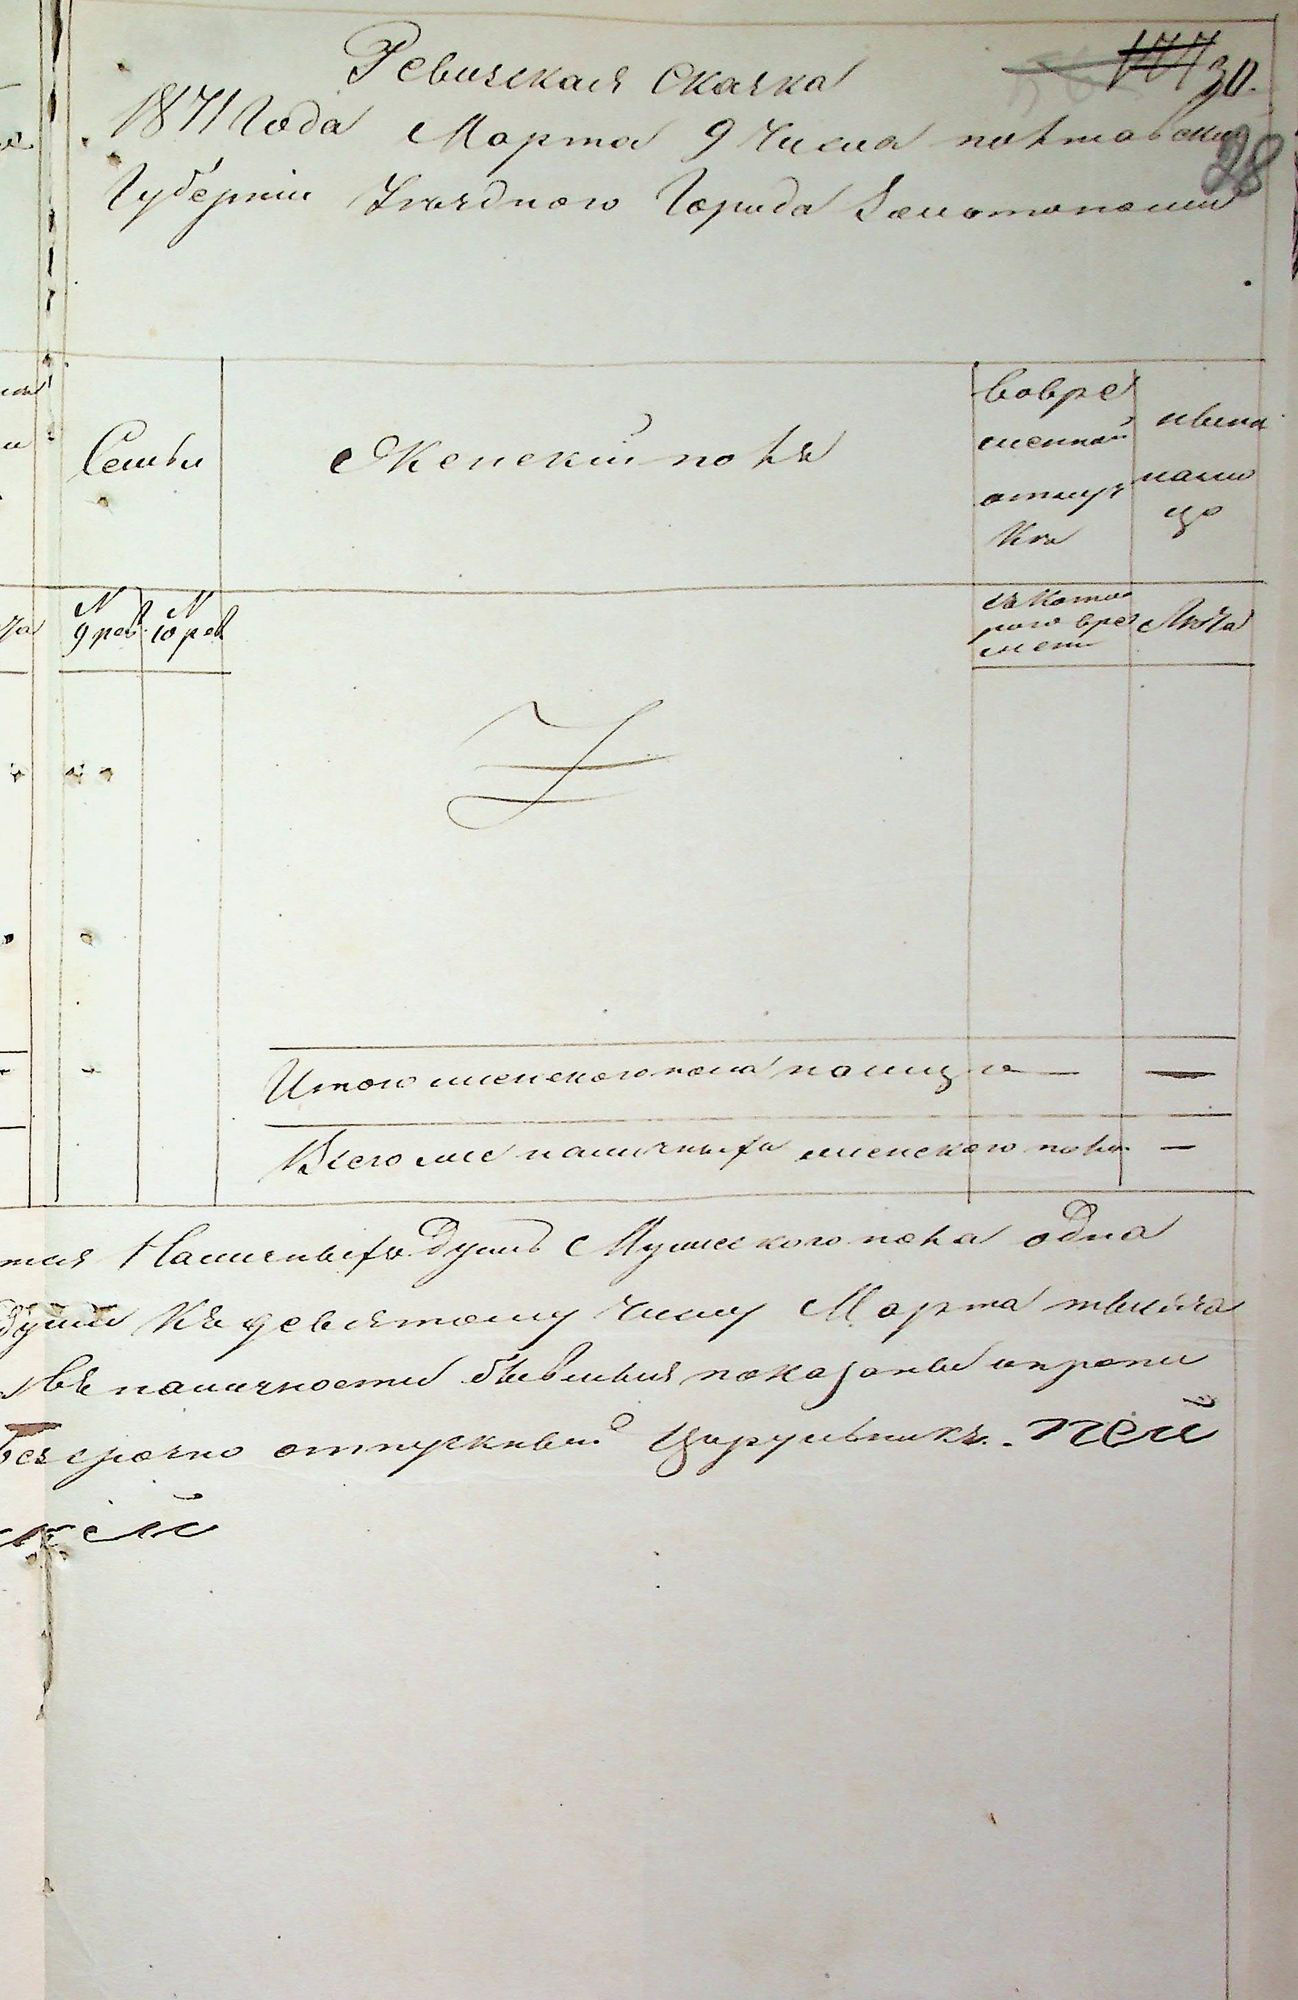 Ревизская Сказка
177 30.
28
1871 Года Марта 9 Числа полтавской
Губерніи Уѣзднаго Города Золотоноши
Семьи
Женскій полъ
Вовре
менной
отлуч
кѣ
ивъна
лицо
№
9 рев.
№
10 рев
съ Кото
раго вре
мени
Лѣта
Итого женскаго пола на лицо —
Всего же наличныхъ женскаго пола —
Наличныхъ Душъ Мужескаго пола одна
души Къ девятому числу Марта тысяча
въ наличности бывшия показаны и пропи
безсрочно отпускный Цырульникъ.